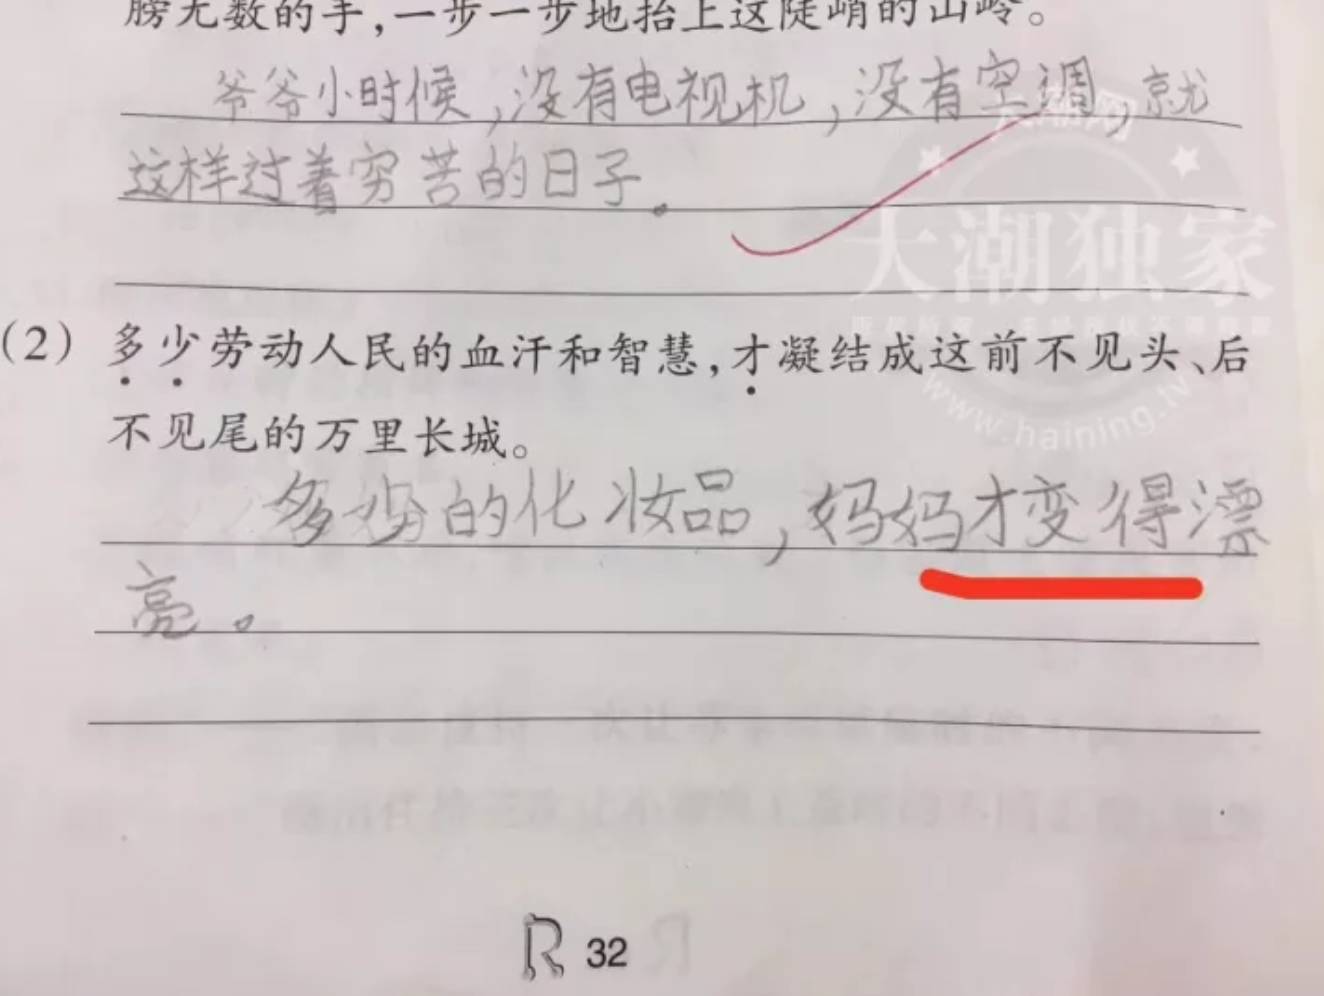 膀无数的手,一步一步地抬上这陡峭的山岭。
爷爷小时候,没有电视机,没有空调,就
这样过着穷苦的日子。
大潮网
大潮独家
(2) 多少劳动人民的血汗和智慧,才凝结成这前不见头、后
www.haining.tv
不见尾的万里长城。
多少的化妆品,妈妈才变得漂
亮。
R 32